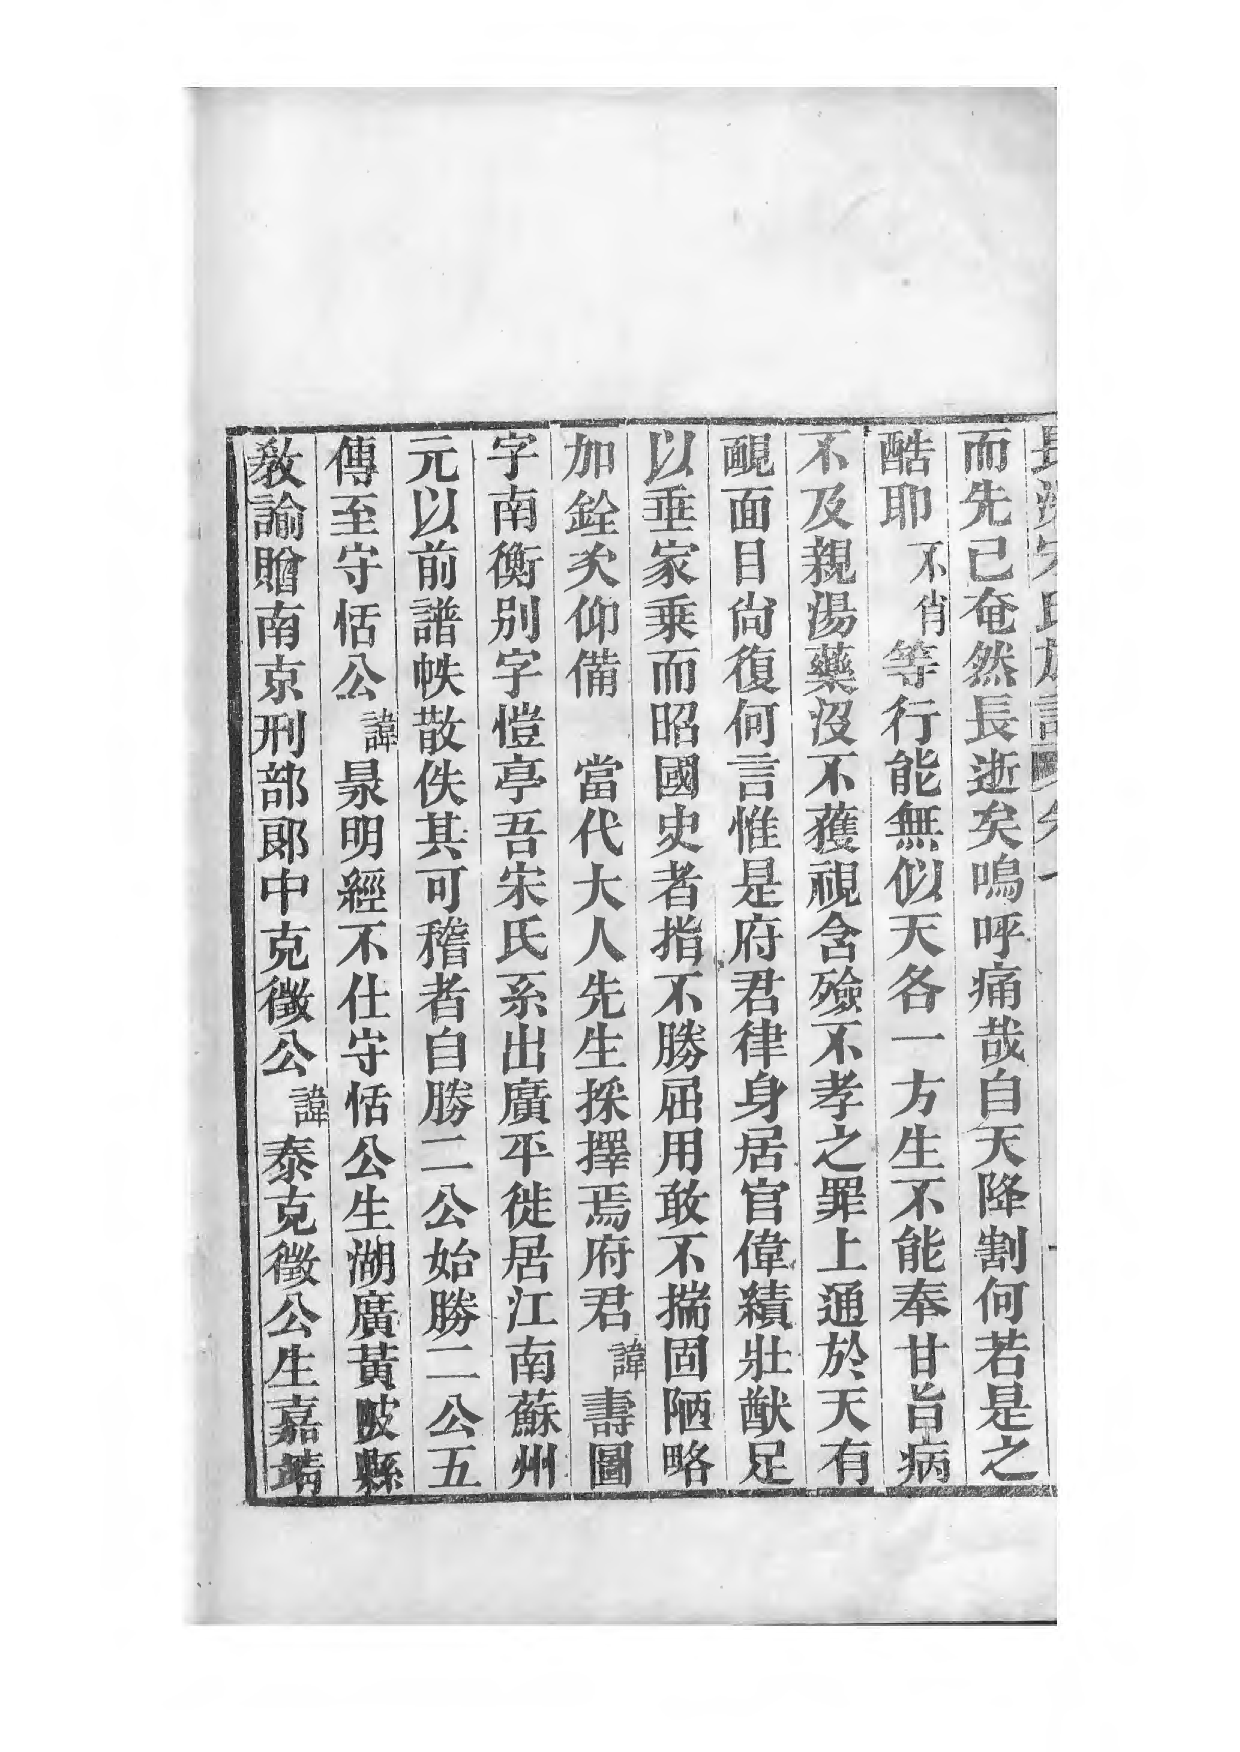 長洲宋氏族譜 卷一
而先已奄然長逝矣嗚呼痛哉自天降割何若是之
酷耶不肖等行能無似天各一方生不能奉甘旨病
不及親湯藥沒不獲視含殮不孝之罪上通於天有
靦面目尙復何言惟是府君律身居官偉績壯猷足
以垂家乘而昭國史者指不勝屈用敢不揣固陋略
加銓次仰備　當代大人先生採擇焉府君諱壽圖
字南衡別字愷亭吾宋氏系出廣平徙居江南蘇州
元以前譜帙散佚其可稽者自勝二公始勝二公五
傳至守恬公諱㬎明經不仕守恬公生湖廣黃陂縣
敎諭贈南京刑部郞中克徵公諱泰克徵公生嘉靖